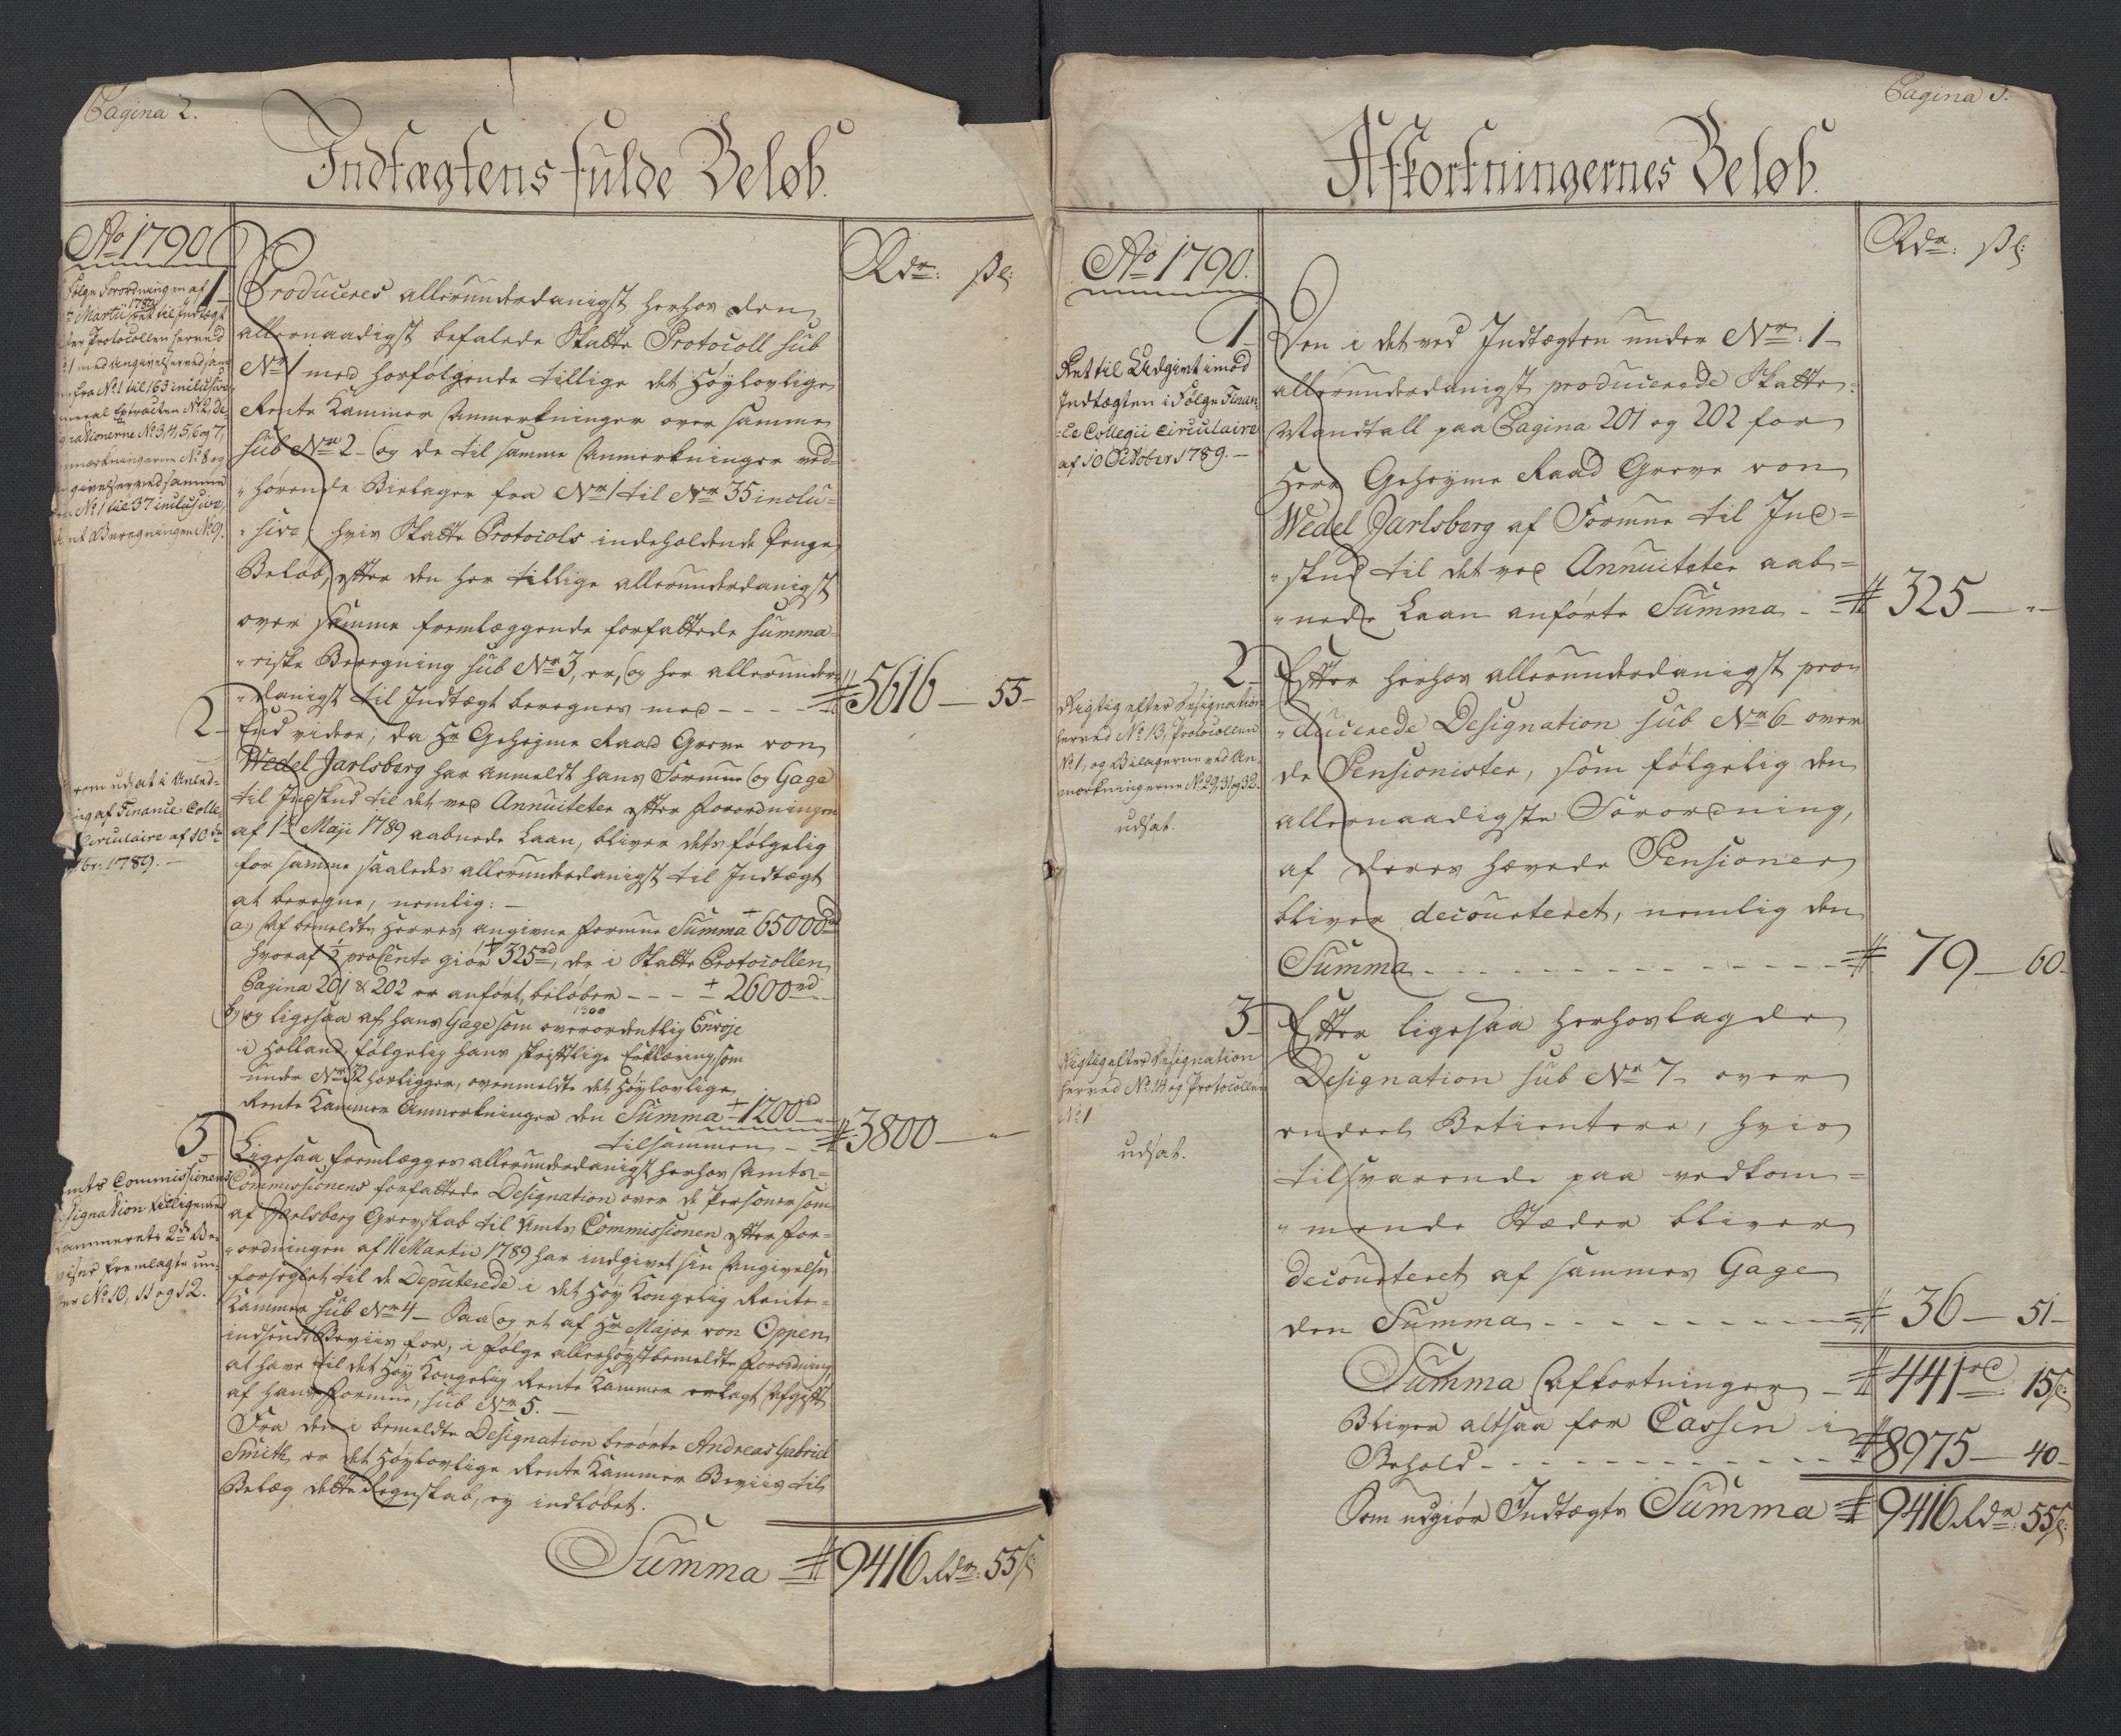 Pagina 2.
Indtægtens fulde Beløb.
No 1790
Følge Forordningen af
Martii 1789 ret til Indtægt
efter Protocollen herved
No 1 med Angivelser ved sam
fra No 1 til 163 inclusive
General Extracten No 2, De-
signationerne No 3, 4, 5, 6 og 7,
Anmærkningerne No 8 og
Angivelser ved samme
fra No 1 til 37 inclusive,
samt Beregningen No 9.
Rdr: ſz:
1
Produceres allerunderdanigst herhos den
allernaadigst befalede Skatte Protocoll sub
Nr 1 med hosfølgende tillige det Høylovlige
Rente Kammer Anmerkninger over samme
sub Nr 2 - og de til samme Anmerkninger ved-
"hørende Bielager fra Nr 1 til Nr 35 inclu-
"sive; hvis Skatte Protocols indeholdende Penge
Beløb, efter den her tillige allerunderdanigst
over samme fremlæggende forfattede Summa-
"riske Beregning sub Nr 3, er, og her allerunder-
"danigst til Indtægt beregnes med - - - - 5616 - 55 -
2
Frem udsat i Anled-
ning af Finance Colle
Circulaire af 10de
br: 1789. -
End videre; da Hr Geheyme Raad Greve von
Wedel Jarlsberg har anmeldt hans Formue og Gage
til Indskud til det ved Annuiteter efter Forordningen
af 1te Maji 1789 aabnede Laan, bliver dets følgelig
for samme saaledes allerunderdanigst til Indtægt
at beregne, nemlig: -
a.) Af bemeldte Herres angivne Formue Summa 65000 rd
hvoraf ½ proCento giør 325 rd, der i Skatte Protocollen
Pagina 201 & 202 er anført, beløber - - - 2600 rd
b, og ligesaa af hans Gage 1300 som overordentlig Envoje
i Holland, følgelig hans skriftlige Erklæring, som
under Nr 32 herligger, ovenmeldte det Høylovlige
Rente Kammer Anmerkninger den Summa 1200 rd
tilsammen - 3800 - "
3
Amts Commissionens
Designation tilligemed
Kammerets 2de Be-
viser fremlagte un-
der No 10, 11 og 12.
Ligesaa fremlægges allerunderdanigst herhos Amts-
Commissionens forfattede Designation over de Personer som
af Jarlsberg Grevskab til Amts Commissionen efter For-
"ordningen af 11 Martii 1789 har indgivet sin Angivelse
forseglet til de Deputerede i det Høy Kongelig Rente-
Kammer sub Nr 4 - Saa og et af Hr Major von Oppen
indsendt Beviis for, i følge allerhøystbemeldte Forordning
at have til det Høy Kongelig Rente Kammer erlagt Afgift
af hans Formue, sub Nr 5. -
Fra den i bemeldte Designation berørte Andreas Gabriel
Smith, er det Høylovlige Rente Kammer Beviis til
Belæg dette Regnskab, ey indløbet.
Summa 9416 Rdr: 55 ſz
Pagina 3.
Afkortningernes Beløb.
No 1790.
Rdr: ſz:
1
Ret til Udgivt imod
Indtægten i Følge Finan-
-ce Collegii Circulaire
af 10 October 1789. -
Den i det ved Indtægten under Nr: 1 -
allerunderdanigst producerede Skatte-
Mandtall paa Pagina 201 og 202 for
Herr Geheyme Raad Greve von
Wedel Jarlsberg af Formue til Ind-
"skud til det ved Annuiteter aab-
"nede Laan anførte Summa - 325 - " -
2
Rigtig efter Designation
herved No 13, Protocollen
No 1, og Bilagerne ved An-
mærkningerne No 29, 31 og 32.
udsat.
Efter herhos allerunderdanigst pro-
"ducerede Designation sub Nr 6 - over
de Pensionister, som følgelig den
allernaadigste Forordning,
af deres hævede Pensioner
bliver decourteret, nemlig den
Summa - - - - - - - - 79 - 60 -
3
Rigtig efter Designation
herved No 14 og Protocollen
No 1
udsat.
Efter ligesaa herhoslagde
Designation sub Nr 7 - over
endeel Betientere, hvis
tilsvarende paa vedkom-
"mende Stæder bliver
decourteret af sammes Gage
den Summa - - - - - - - 36 - 51 -
Summa Afkortninger - 441 rd 15 ſz
Bliver altsaa for Cassen i
Behold - - - - - - - - 8975 - 40 -
Som udgiør Indtægts Summa 9416 Rdr 55 ſz